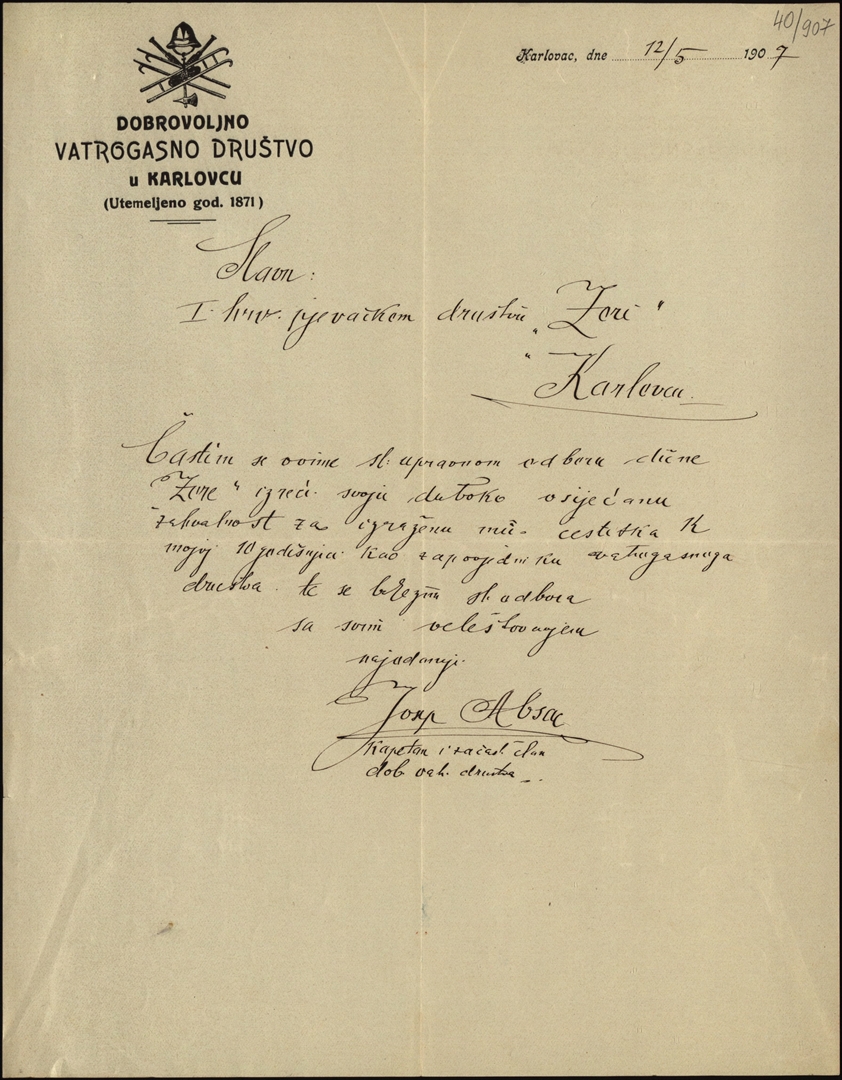 40/907
Karlovac, dne 12/5 1907
DOBROVOLJNO
VATROGASNO DRUŠTVO
u KARLOVCU
(Utemeljeno god. 1871)
Slavn:
I. hrv. pjevačkom društvu „Zori"
" Karlovcu
Častim se ovime sl. upravnom odboru dične
„Zore" izreći svoju duboko osjećanu
zahvalnost za izraženu mi čestitku k
mojoj 10 godišnjici kao zapovjedniku vatrogasnoga
društva te se bilježim sl. odbora
sa svim veleštovanjem
najodaniji
Josip
kapetan i začast. član
dob. vatr. društva